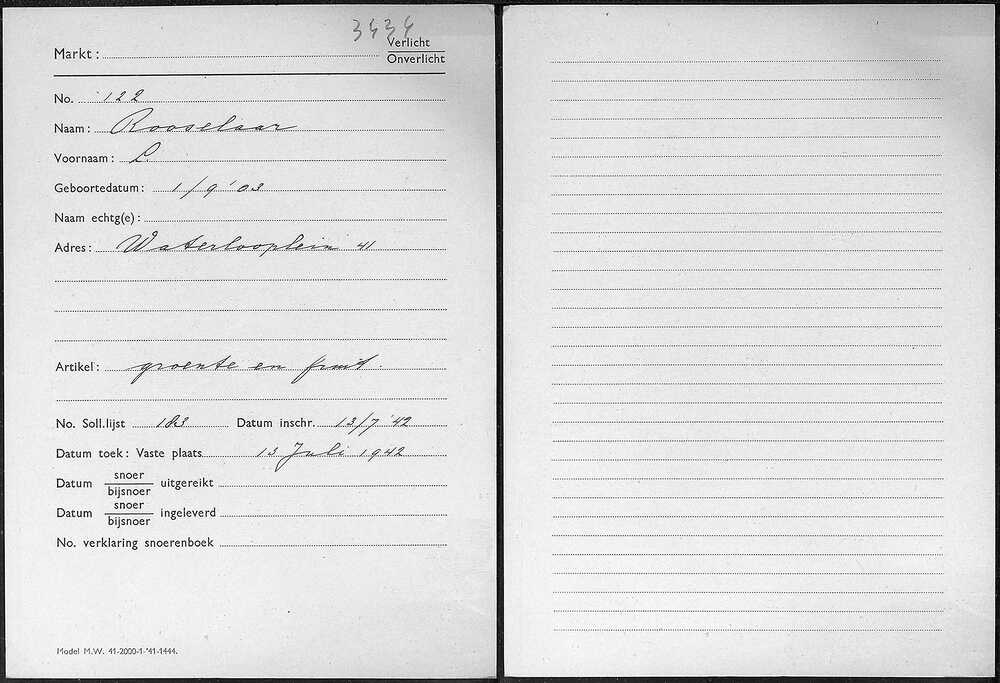 3434
Markt : Verlicht
Onverlicht
No. 122
Naam : Rooselaar
Voornaam : L.
Geboortedatum : 1/9 '03
Naam echtg(e) :
Adres : Waterlooplein 41
Artikel : groente en fruit.
No. Soll.lijst 183 Datum inschr. 13/7 '42
Datum toek: Vaste plaats 13 Juli 1942
Datum snoer
bijsnoer uitgereikt
Datum snoer
bijsnoer ingeleverd
No. verklaring snoerenboek
Model M.W. 41-2000-1-'41-1444.